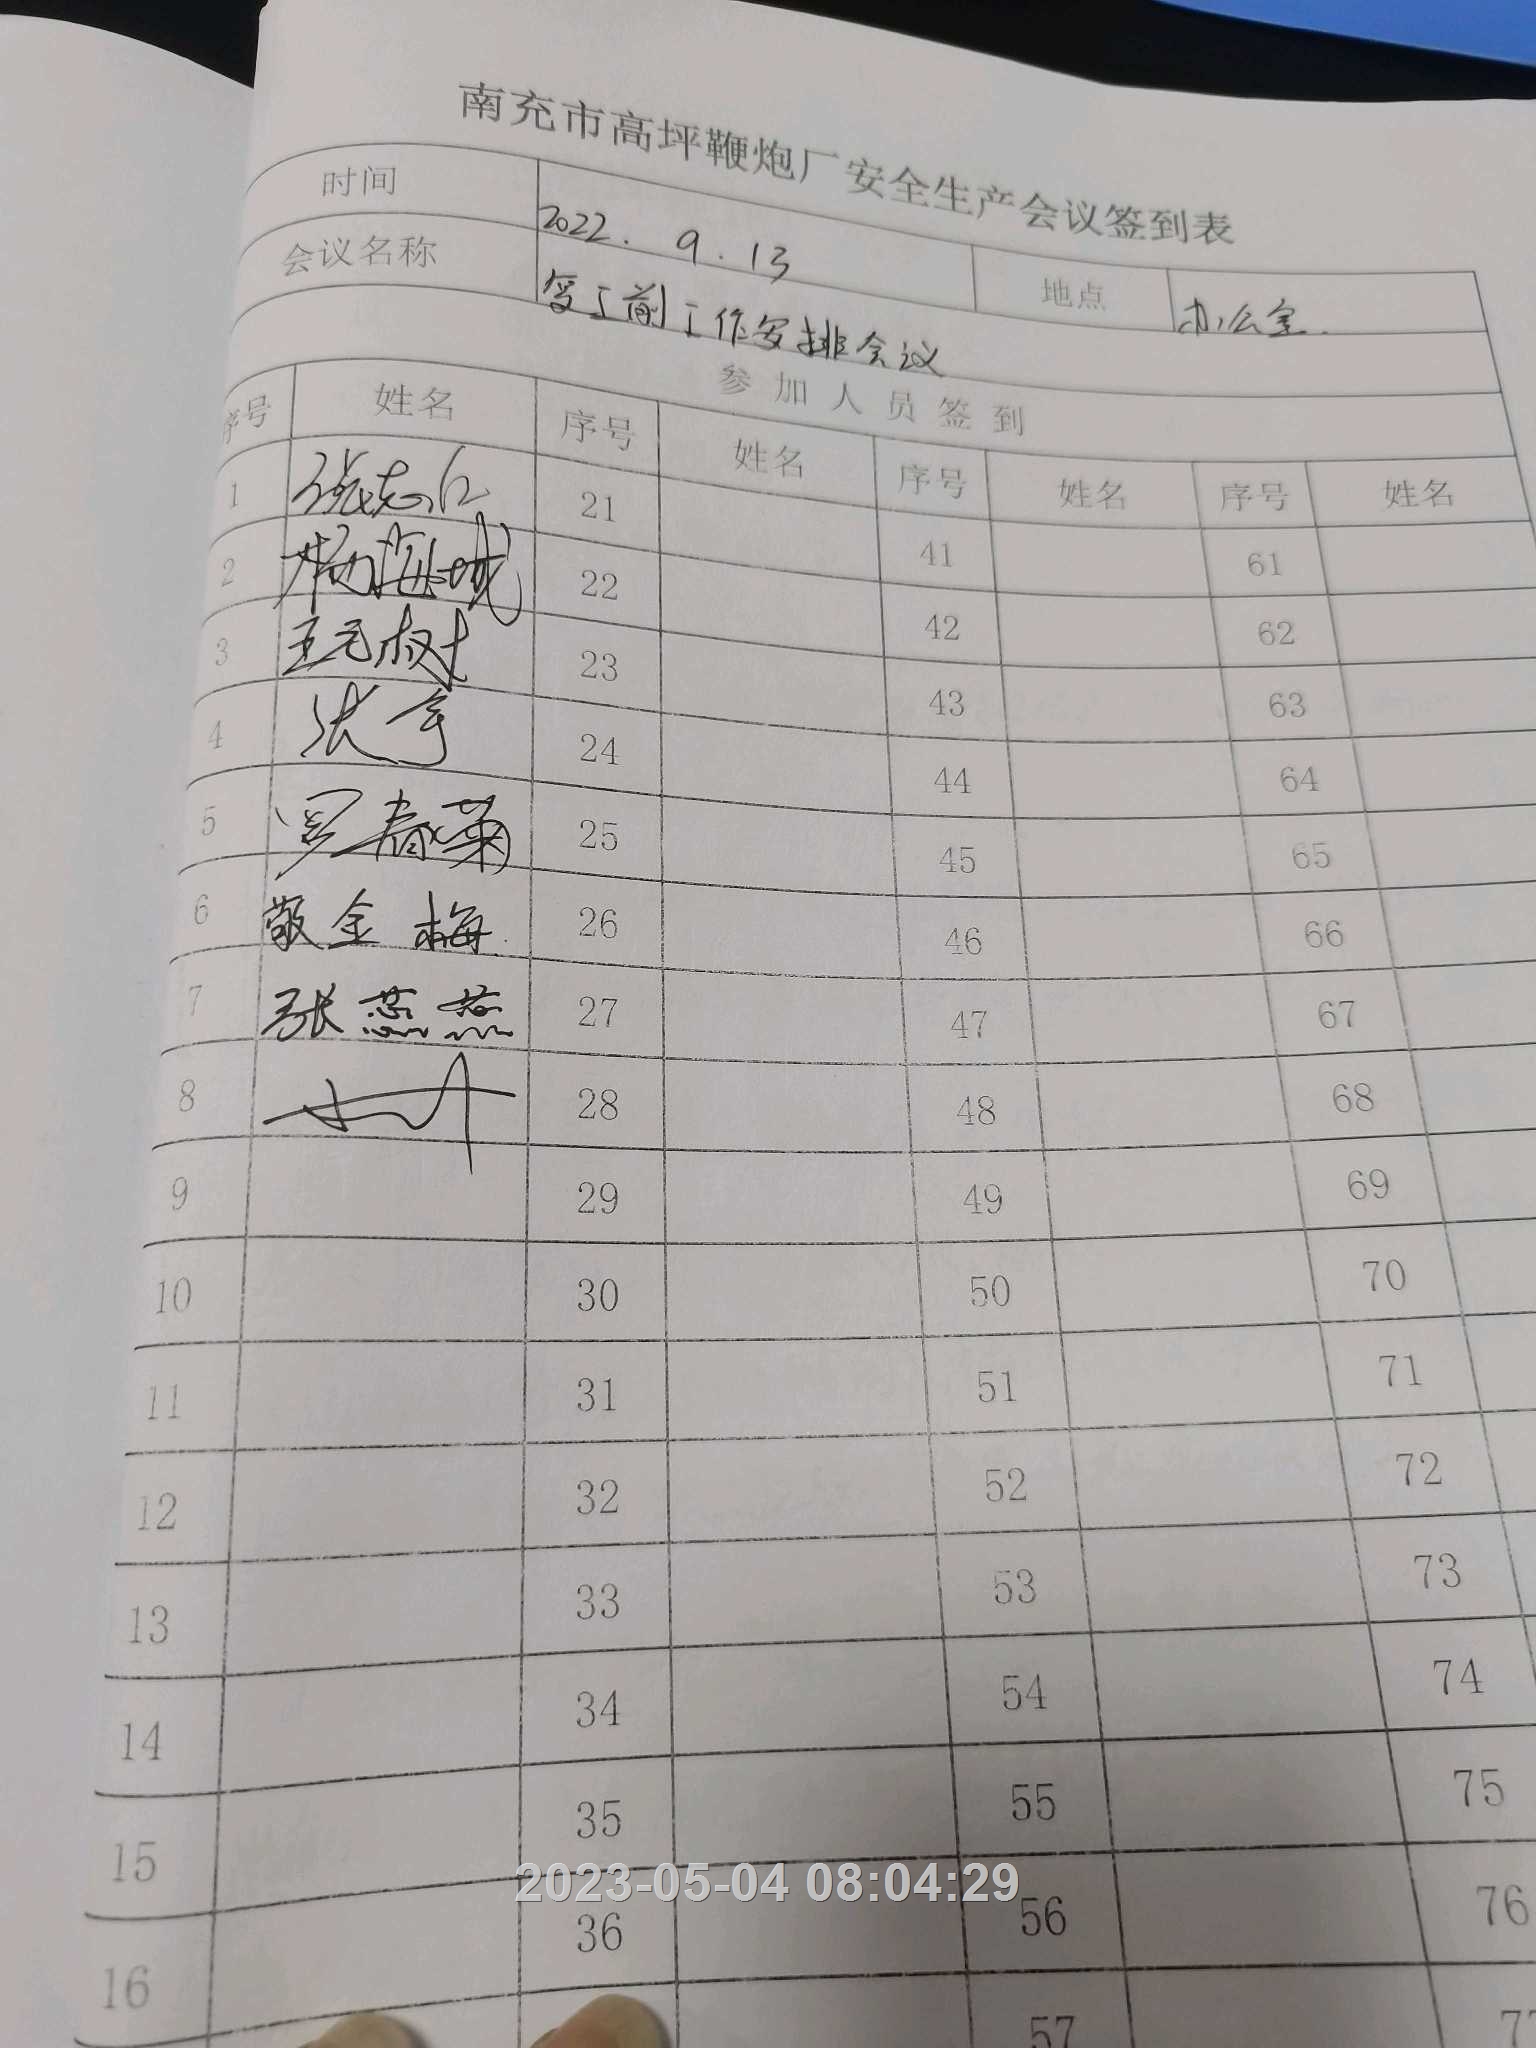 南充市高坪鞭炮厂安全生产会议签到表
时间 2022.9.13 地点 办公室.
会议名称 复工前工作安排会议
参加人员签到
序号 姓名 序号 姓名 序号 姓名 序号 姓名
1 张志仁 21 41 61
2 杨海城 22 42 62
3 王元树 23 43 63
4 张宇 24 44 64
5 罗春菊 25 45 65
6 敬金梅. 26 46 66
7 张蕊燕 27 47 67
8 28 48 68
9 29 49 69
10 30 50 70
11 31 51 71
12 32 52 72
13 33 53 73
14 34 54 74
15 35 55 75
16 36 56 76
57 77
2023-05-04 08:04:29